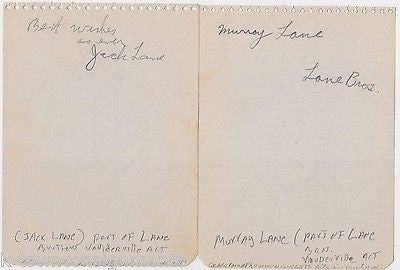 Best wishes
as ever
Jack Lane
(JACK LANE) PART OF LANE
BROTHERS VAUDERVILLE ACT
Murray Lane
Lane Bros.
MURRAY LANE (PART OF LANE
BROS.
VAUDERVILLE ACT